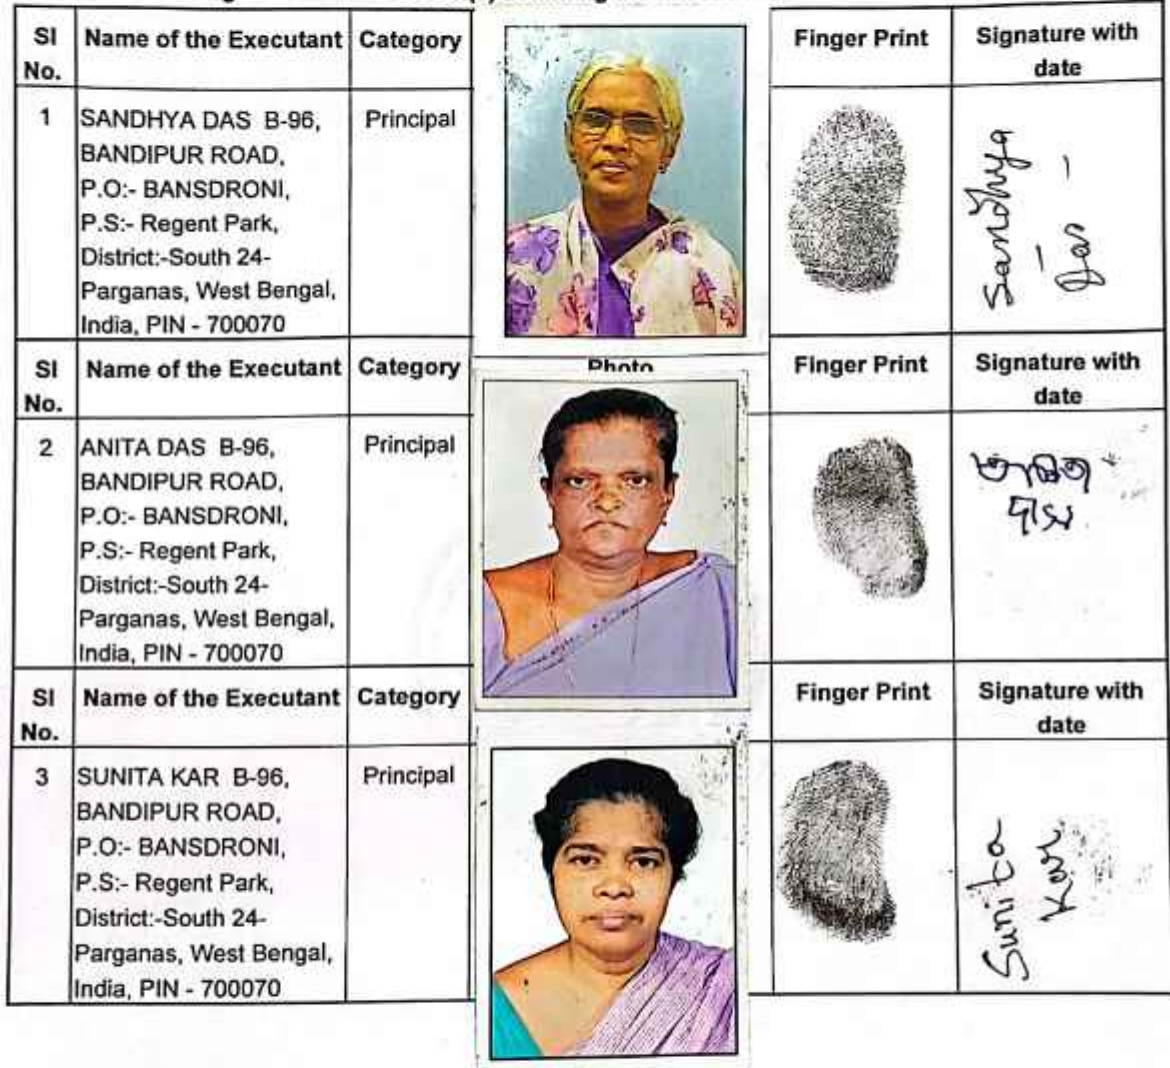 SI No.
Name of the Executant
Category
Finger Print
Signature with date
1
SANDHYA DAS B-96,
BANDIPUR ROAD,
P.O:- BANSDRONI,
P.S:- Regent Park,
District:-South 24-
Parganas, West Bengal,
India, PIN - 700070
Principal
Sandhya
Das
SI No.
Name of the Executant
Category
Photo
Finger Print
Signature with date
2
ANITA DAS B-96,
BANDIPUR ROAD,
P.O:- BANSDRONI,
P.S:- Regent Park,
District:-South 24-
Parganas, West Bengal,
India, PIN - 700070
Principal
দাস
SI No.
Name of the Executant
Category
Finger Print
Signature with date
3
SUNITA KAR B-96,
BANDIPUR ROAD,
P.O:- BANSDRONI,
P.S:- Regent Park,
District:-South 24-
Parganas, West Bengal,
India, PIN - 700070
Principal
Sunita
Kar